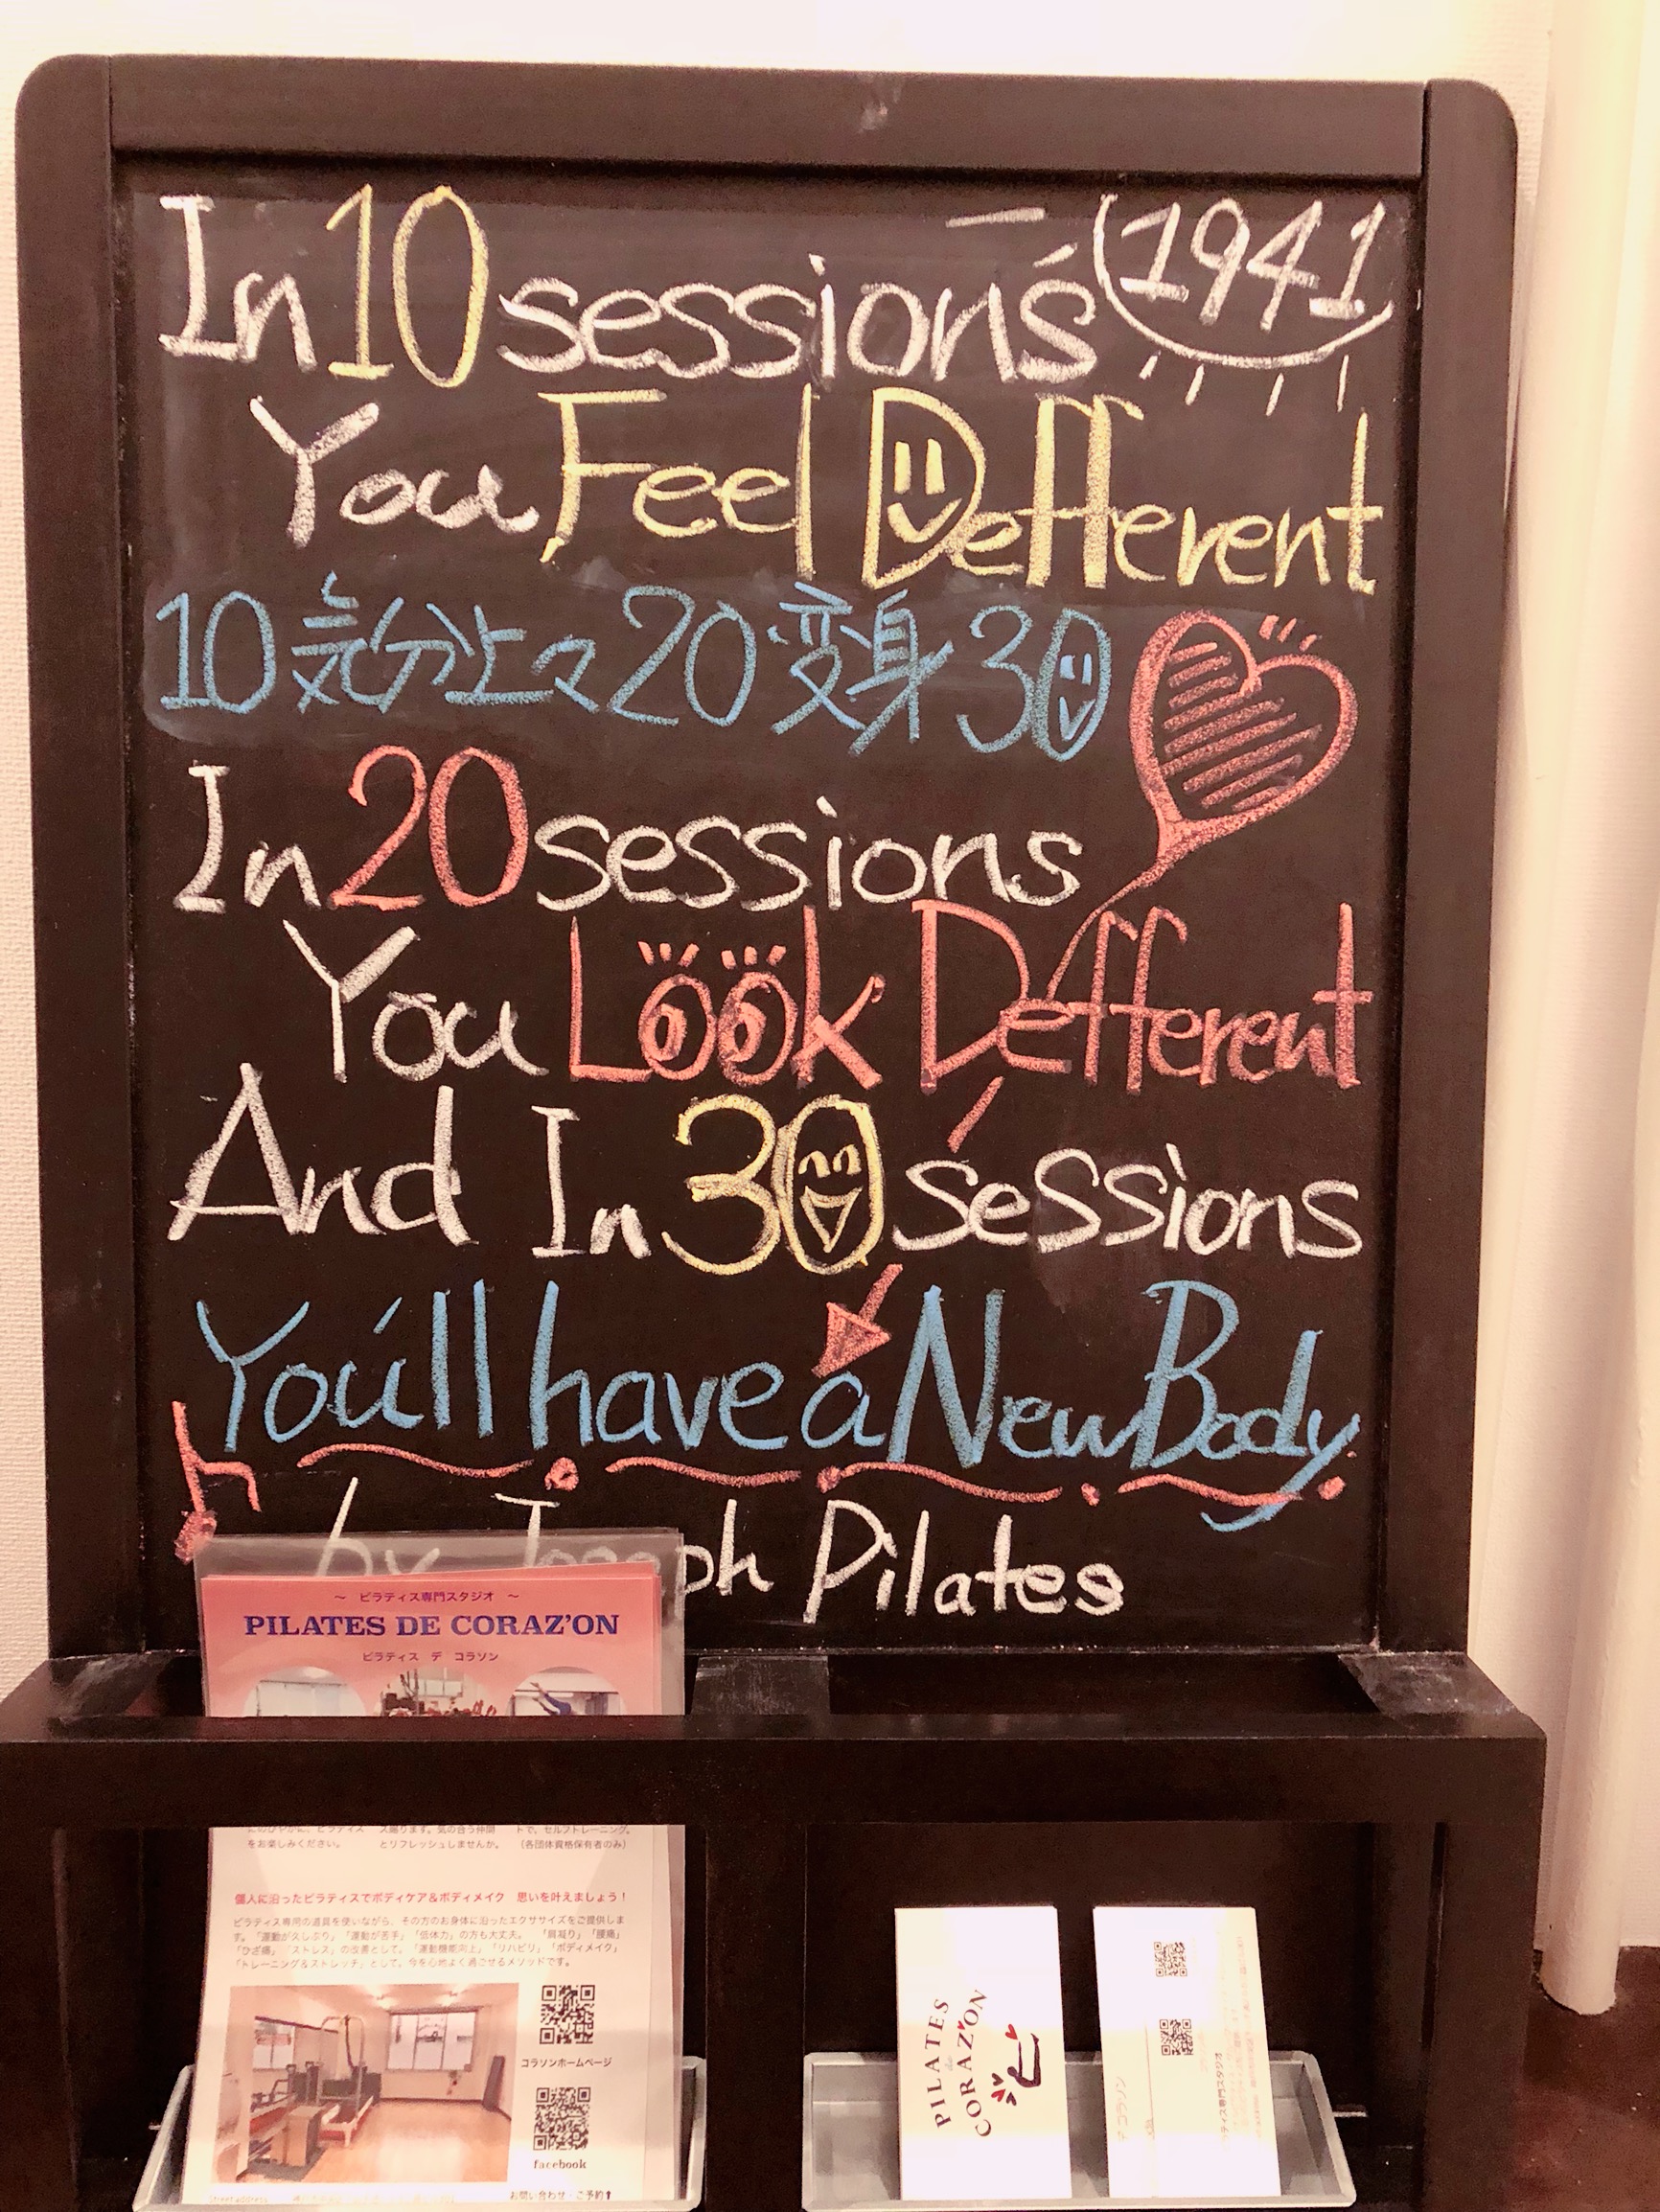 In 10 sessions 1941
You Feel Defferent
10 気分上々 20 変身 30
In 20 sessions
You Look Defferent
And In 30 sessions
You'll have a New Body
by Joseph Pilates
～ ピラティス専門スタジオ ～
PILATES DE CORAZ'ON
ピラティス デ コラソン
をお楽しみください。
ズ賜ります。気の合う仲間
とリフレッシュしませんか。
トで、セルフトレーニング。
（各団体資格保有者のみ）
個人に沿ったピラティスでボディケア＆ボディメイク 思いを叶えましょう！
ピラティス専用の道具を使いながら、その方のお身体に沿ったエクササイズをご提供しま
す。「運動が久しぶり」「運動が苦手」「低体力」の方も大丈夫。 「肩凝り」「腰痛」
「ひざ痛」「ストレス」の改善として。「運動機能向上」「リハビリ」「ボディメイク」
「トレーニング＆ストレッチ」として。今を心地よく過ごせるメソッドです。
コラソンホームページ
facebook
お問い合わせ・ご予約⬆
PILATES
de
CORAZ'ON
ティス専門スタジオ
デ コラソン